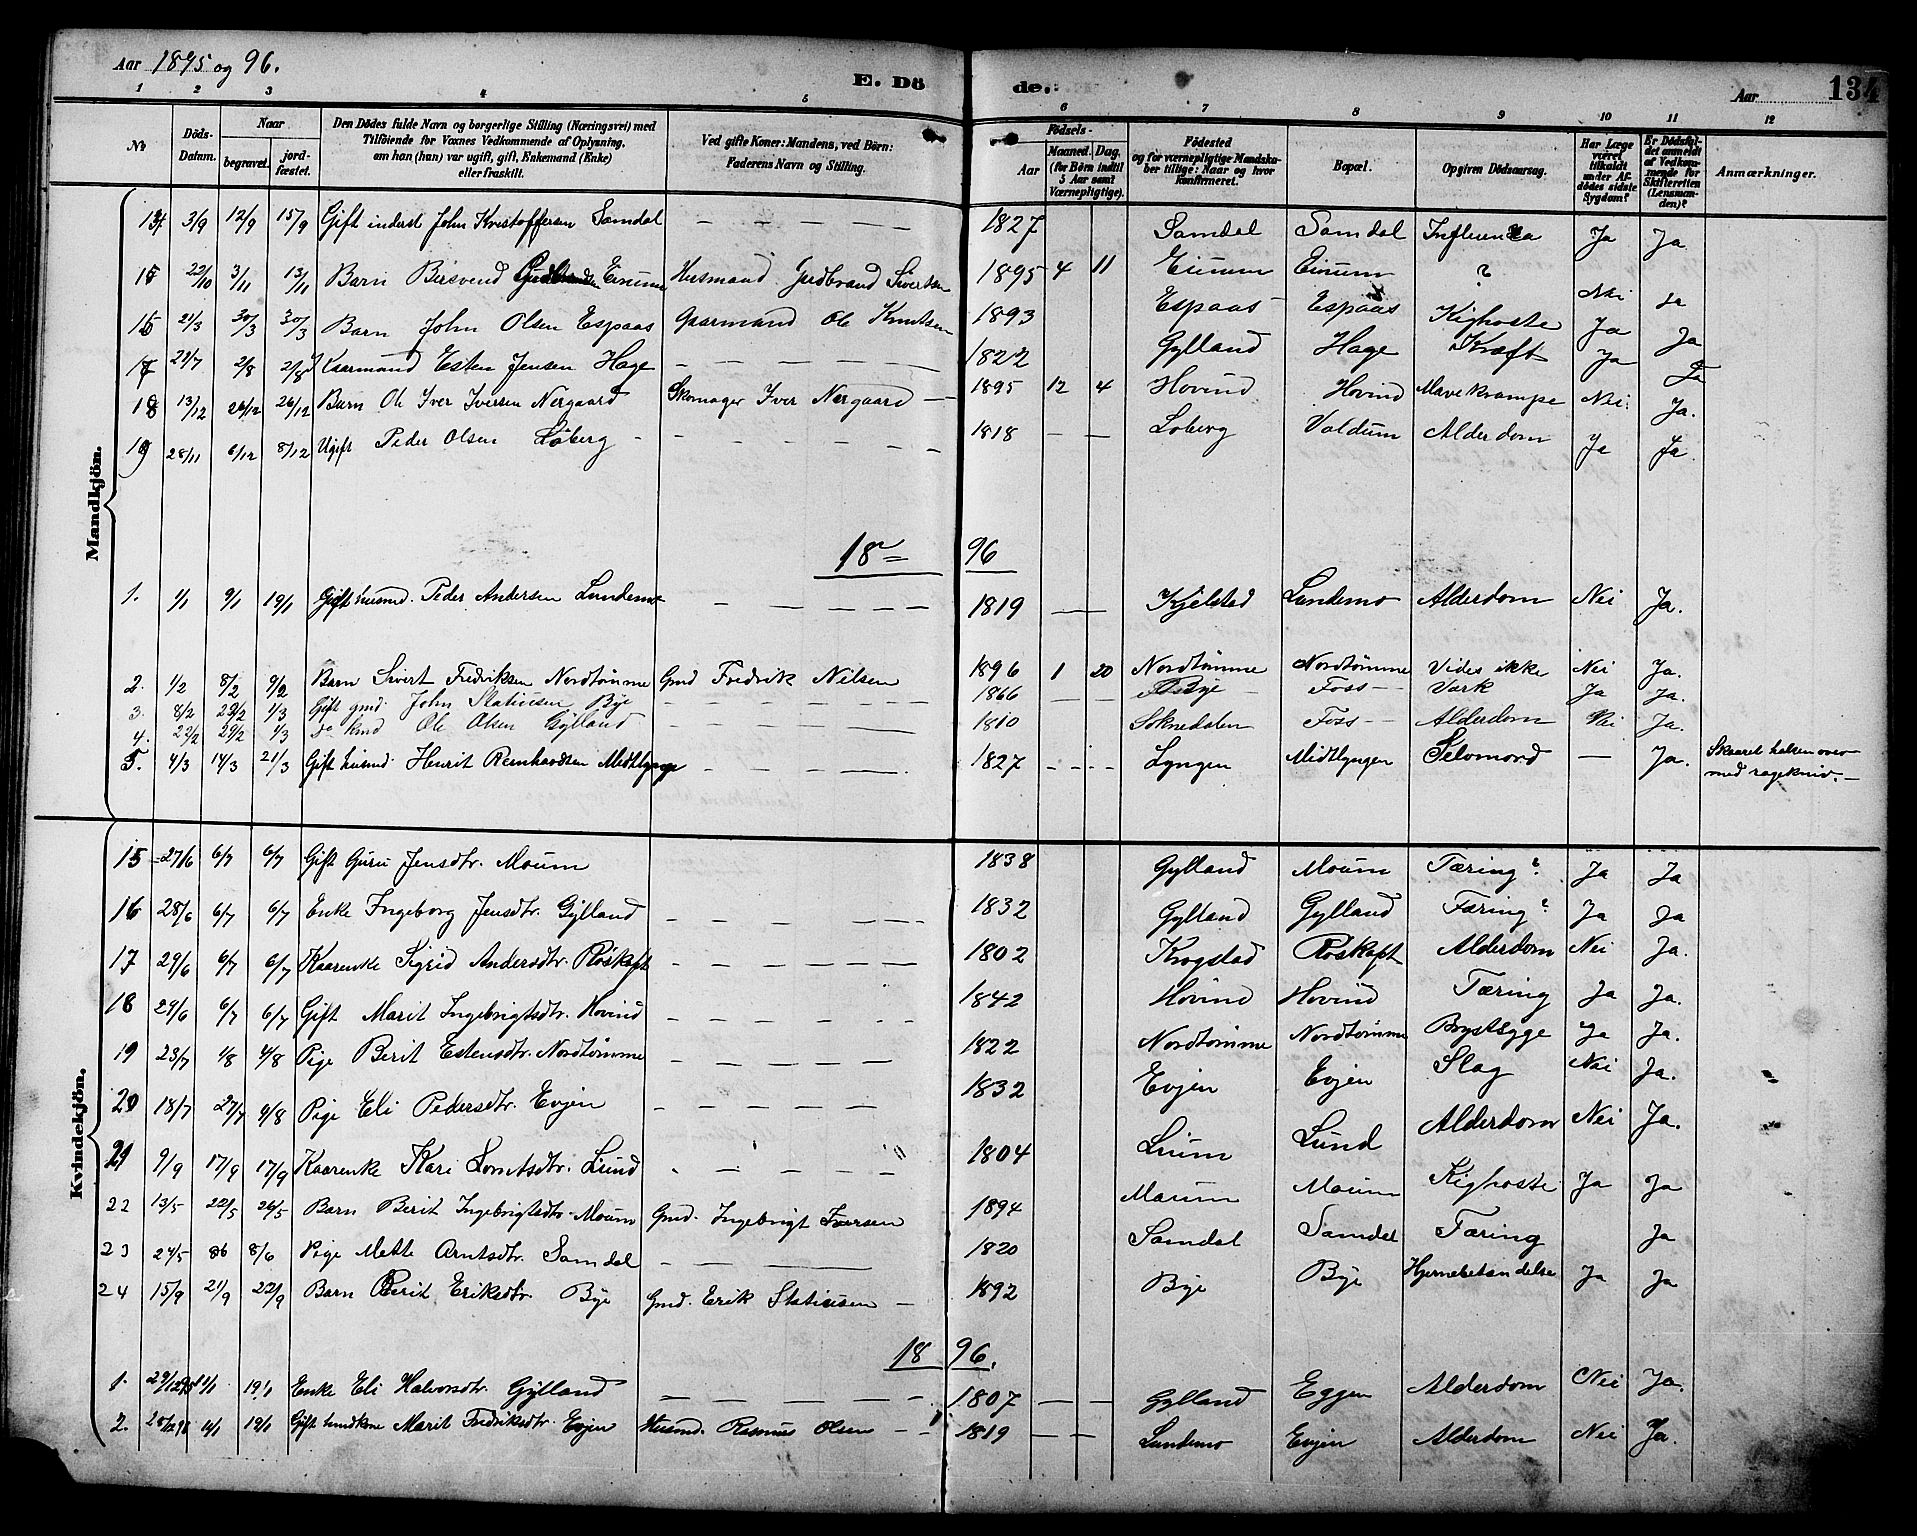 Aar 1895 og 96.
E. Dö de.
Aar 134
1 2 3 4 5 6 7 8 9 10 11 12
No
Döds-Datum.
Naar begravet. jord-fæstet.
Den Dödes fulde Navn og borgerlige Stilling (Næringsvei) med Tilföiende for Voxnes Vedkommende af Oplysning, om han (hun) var ugift, gift, Enkemand (Enke) eller fraskilt.
Ved gifte Koner: Mandens, ved Börn: Faderens Navn og Stilling.
Födsels- Aar Maaned. Dag. (for Börn indtil 5 Aar samt Værnepligtige).
Födested og for værnepligtige Mandska-ber tillige: Naar og hvor konfirmeret.
Bopæl.
Opgiven Dödsaarsag.
Har Læge været tilkaldt under Af-dödes sidste Sygdom?
Er Dödsfal-det anmeldt af Vedkom-mende for Skifteretten (Lensman-den)?
Anmærkninger.
Mandkjön.
14 3/9 12/9 15/9 Gift inderst John Kristoffersen Samdal — — — 1827 Samdal Samdal Influenza Ja Ja
15 22/10 3/11 13/11 Barn Husmand Gudbrand Sivertsen 1895 4 11 Eirum Eirum ? Nei Ja
16 21/3 30/3 30/3 Barn John Olsen Espaas Gaarmand Ole Knutsen 1893 Espaas Espaas Kighoste Ja Ja
17 2/8 2/8 Kaarmand Esten Jensen Hage — — — 1822 Gylland Hage Kræft Ja Ja
18 13/12 26/12 26/12 Barn Ole Iver Iversen Nergaard Skomager Iver Nergaard — 1895 12 4 Hovind Hovind Mavekrampe Nei Ja.
19 28/11 6/12 8/12 Ugift Peder Olsen Löberg — — — 1818 — — Löberg Valdum Alderdom Ja Ja.
18 96
1. 1/1 9/1 19/1 Gift husmd. Peder Andersen Lundemo — — — 1819 — Kjelstad Lundemo Alderdom Nei Ja.
2. 1/2 8/2 9/2 Barn Sivert Fredriksen Nordtömme Gmd Fredrik Nilsen 1896 1 20 Nordtömme Nordtömme Vides ikke Nei Ja.
3. 8/2 29/2 1/3 Gift gmd. John Bye — — — 1866 — — Bye Foss Værk Ja Ja.
4. 22/2 29/2 1/3 do kmd Ole Olsen Gylland — — — 1810 Soknedalen Foss Alderdom Nei Ja.
5. 4/3 14/3 21/3 Gift husmd. Henrik Reinhardtsen Midtlyngen — — — 1827 — — Lyngen Midtlyngen Selvmord — Ja. Skaaret halsen over med ragekniv.
Kvindekjön.
15 27/6 6/7 6/7 Gift Guru Jensdtr. Moum 1838 Gylland Moum Tæring? Ja Ja
16 28/6 6/7 6/7 Enke Ingeborg Jensdtr. Gylland — — — 1832 Gylland Gylland Tæring? Ja Ja
17 29/6 6/7 6/7 Kaarenke Sigrid Andersdtr. Röskaft — — — 1802 Krogstad Röskaft Alderdom Nei Ja.
18 29/6 6/7 6/7 Gift Marit Ingebrigtsdtr. Hovind — — — 1842 Hovind Hovind Tæring Ja Ja.
19 23/7 1/8 4/8 Pige Berit Estensdtr. Nordtömme — — — 1822 Nordtömme Nordtömme Brystsyge Ja Ja.
20 18/7 27/7 9/8 Pige Eli Pedersdtr. Evjen — — — 1832 Evjen Evjen Slag Nei Ja.
21 9/9 17/9 17/9 Kaarenke Kari Lorntsdtr. Lund — — — 1804 Lium Lund Alderdom Nei Ja.
22 13/5 22/5 26/5 Barn Berit Ingebrigtsdtr. Moum Gmd. Ingebrigt Iversen 1894 Moum Moum Kighoste Ja Ja
23 24/5 8/6 8/6 Pige Mette Arntsdtr. Samdal — — — 1820 Samdal Samdal Tæring Ja
24 15/9 21/9 22/9 Barn Berit Eriksdtr. Bye Gmd. Erik — 1892 Bye Bye Hjernebetændelse Ja Ja
18 96.
1. 11/1 19/1 Enke Eli Halvorsdtr. Gylland — — 1807 — — Gylland Eggen Alderdom Nei Ja.
2. 11/1 19/1 Gift Marit Fredriksdtr. Evjen Husmd. Rasmus Olsen — — 1819 — — Lundemo Evjen Alderdom Nei Ja.